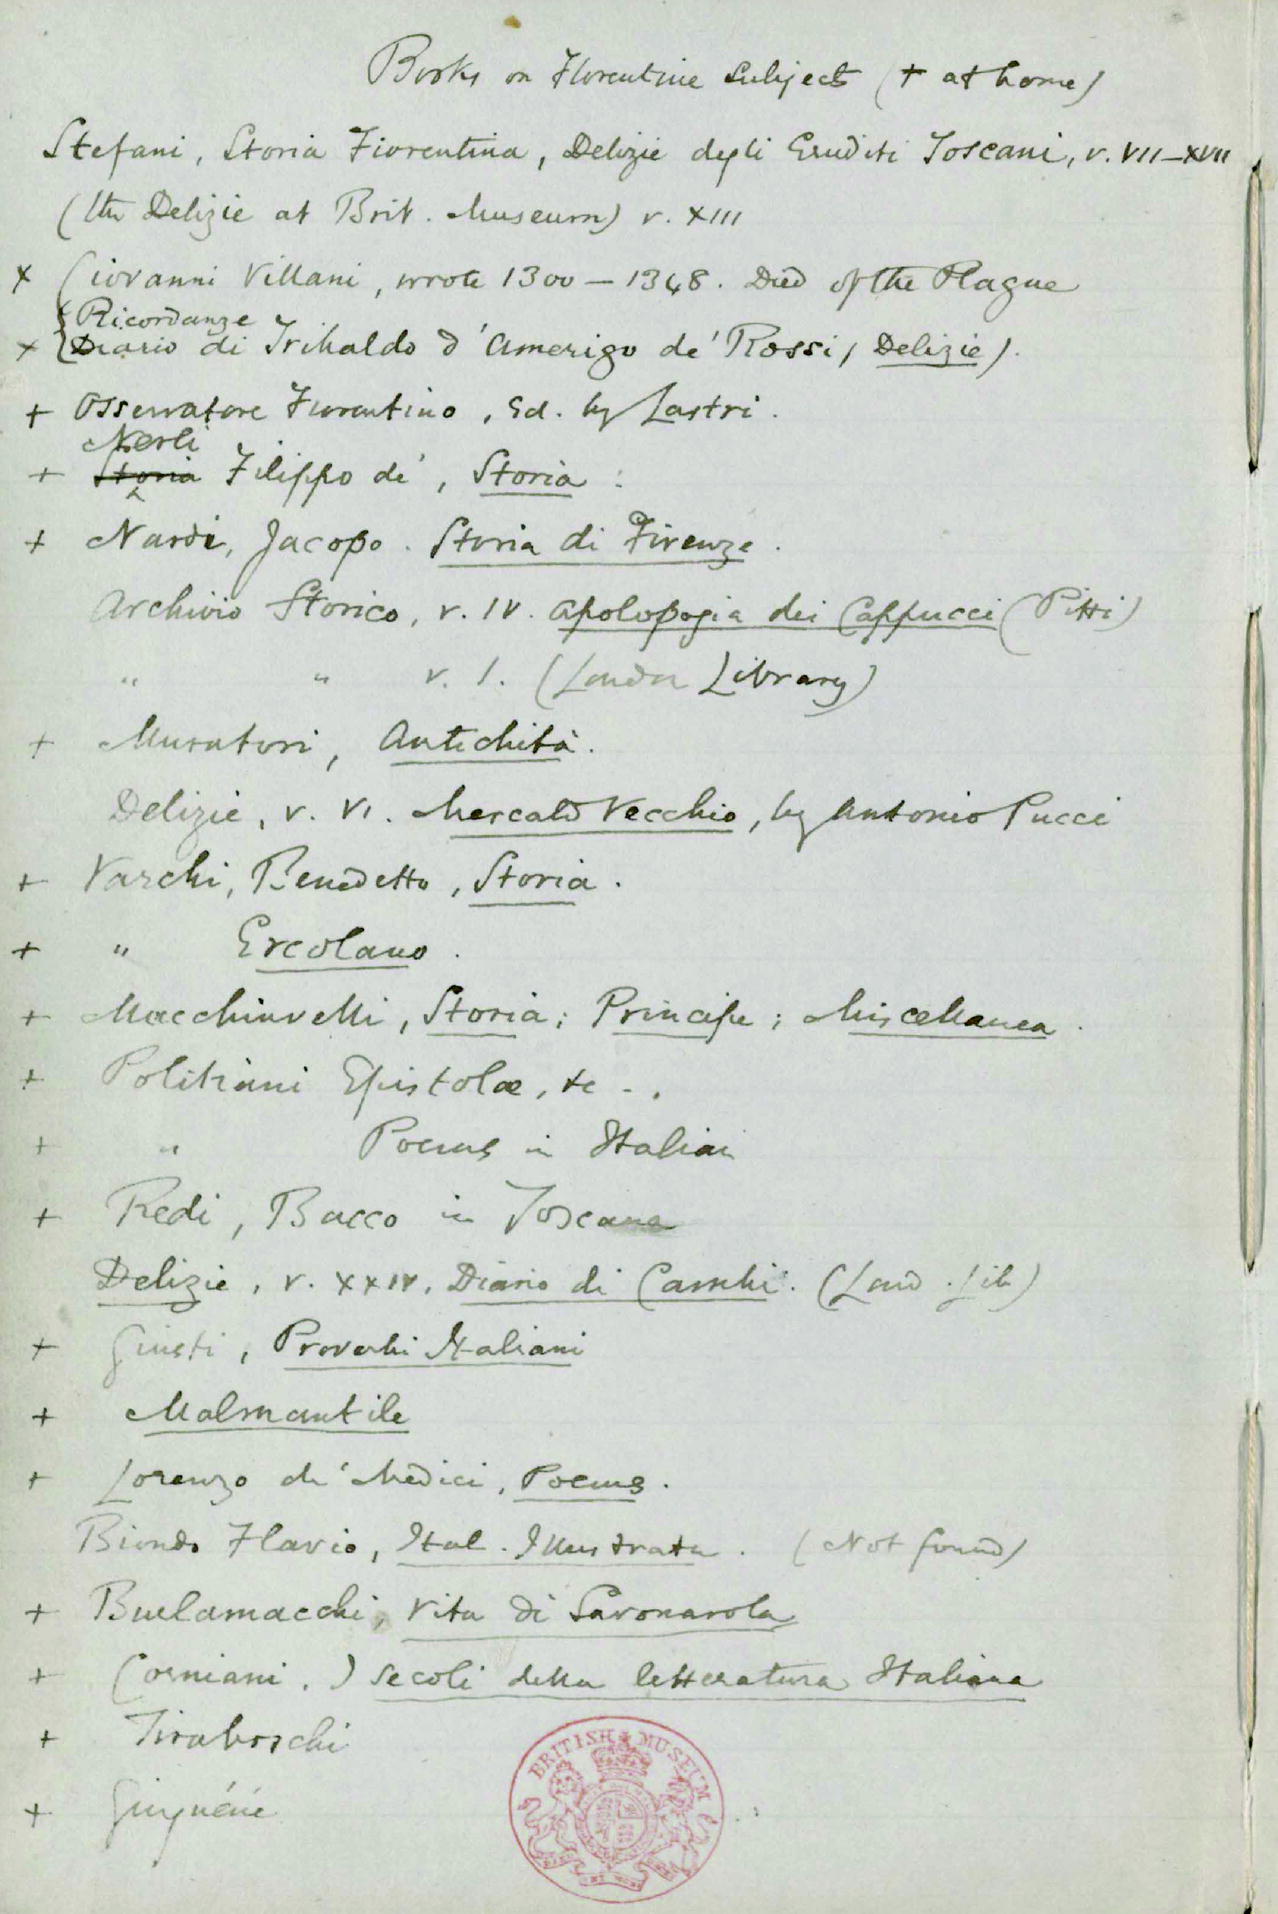 Books on Florentine Subjects (+ at home)
Stefani, Storia Fiorentina, Delizie degli Eruditi Toscani, v. VII–XVII
(the Delizie at Brit. Museum) v. XIII
x Giovanni Villani, wrote 1300–1348. Died of the Plague
Ricordanze
x Diario di Tribaldo d'Amerigo de' Rossi, Delizie).
+ Osservatore Fiorentino, Ed. by Lastri.
Nerli
+ Storia Filippo de', Storia :
+ Nardi, Jacopo. Storia di Firenze.
Archivio Storico, v. IV. Apolopogia dei Cappucci (Pitti)
" " v. I. (London Library)
+ Muratori, Antichità.
Delizie, v. VI. Mercato Vecchio, by Antonio Pucci
+ Varchi, Benedetto, Storia.
+ " Ercolano.
+ Macchiavelli, Storia; Principe; Miscellanea.
+ Politiani Epistolæ, &c -.
+ " Poems in Italian
+ Redi, Bacco in Toscana
Delizie, v. XXIV, Diario di Cambi. (Lond. Lib)
+ Giusti, Proverbi Italiani
+ Malmantile
+ Lorenzo de' Medici, Poems.
Biondo Flavio, Ital. Illustrata. (Not found)
+ Burlamacchi, Vita di Savonarola
+ Corniani.) Secoli della letteratura Italiana
+ Tiraboschi
+ Ginguéné
BRITISH MUSEUM